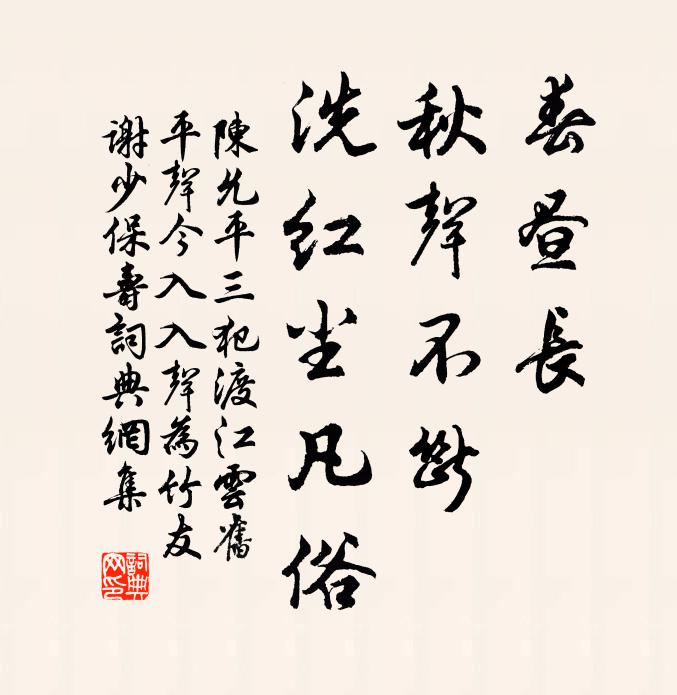 春昼長
秋聲不斷
洗紅尘凡俗
陳允平三犯渡江雲舊
平聲今入入聲為竹友
謝少保壽詞典網集
詞典
网印